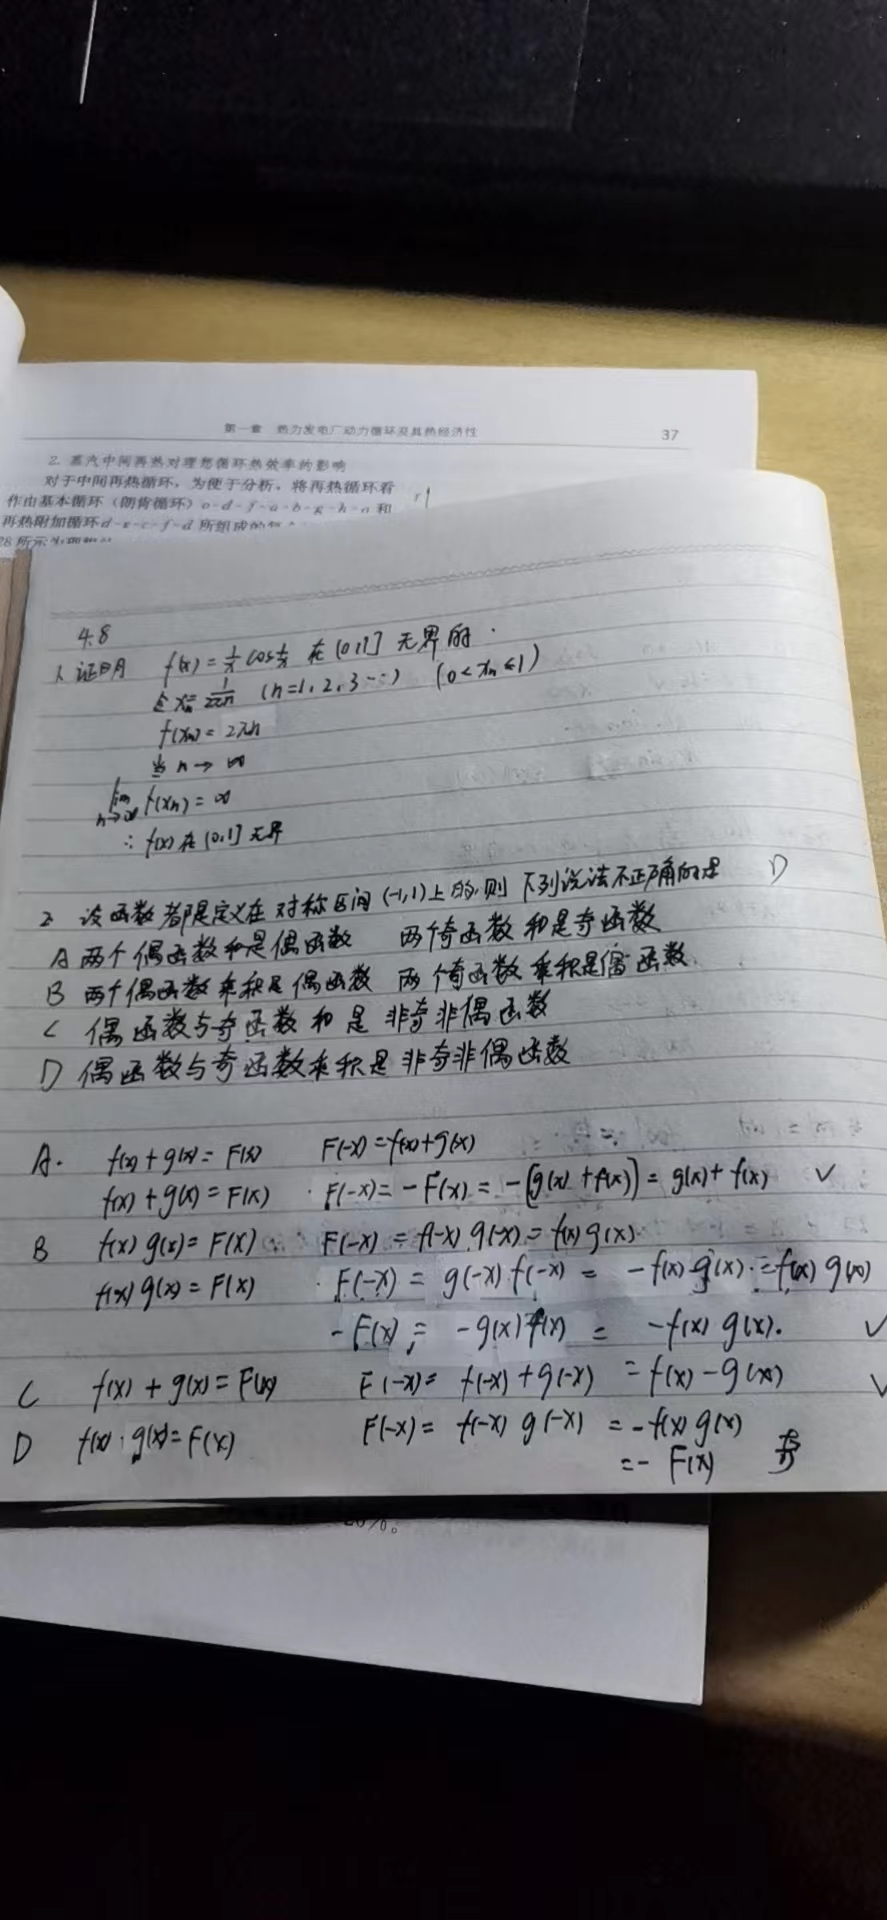 第一章 热力发电厂动力循环及其热经济性 37
2. 蒸汽中间再热对理想循环热效率的影响
对于中间再热循环，为便于分析，将再热循环看
作由基本循环（朗肯循环）
再热附加循环
4.8
1. 证明 f(x) = 1/x cos 1/x 在 (0,1] 无界的.
令 xn = 1/2πn (n=1、2、3…) (0<xn≤1)
f(xn) = 2πn
当 n→∞
lim n→∞ f(xn) = ∞
∴ f(x) 在 (0,1] 无界
2 设函数都是定义在对称区间 (-1,1) 上的.则下列说法不正确的是 D
A 两个偶函数和是偶函数 两个奇函数和是奇函数
B 两个偶函数乘积是偶函数 两个奇函数乘积是偶函数.
C 偶函数与奇函数和是非奇非偶函数
D 偶函数与奇函数乘积是非奇非偶函数
A. f(x)+g(x)=F(x) F(-x)=f(x)+g(x)
f(x)+g(x)=F(x) F(-x)=-F(x)=-[g(x)+f(x)]=g(x)+f(x) ✓
B f(x)g(x)=F(x) F(-x)=f(-x)g(-x)=f(x)g(x)
f(x)g(x)=F(x) F(-x)=g(-x)f(-x)=-f(x)g(x).=f(x)g(x)
-F(x)=-g(x)f(x)=-f(x)g(x). ✓
C f(x)+g(x)=F(x) F(-x)=f(-x)+g(-x)=f(x)-g(x) ✓
D f(x)·g(x)=F(x) F(-x)=f(-x)g(-x)=-f(x)g(x)
=-F(x) 奇